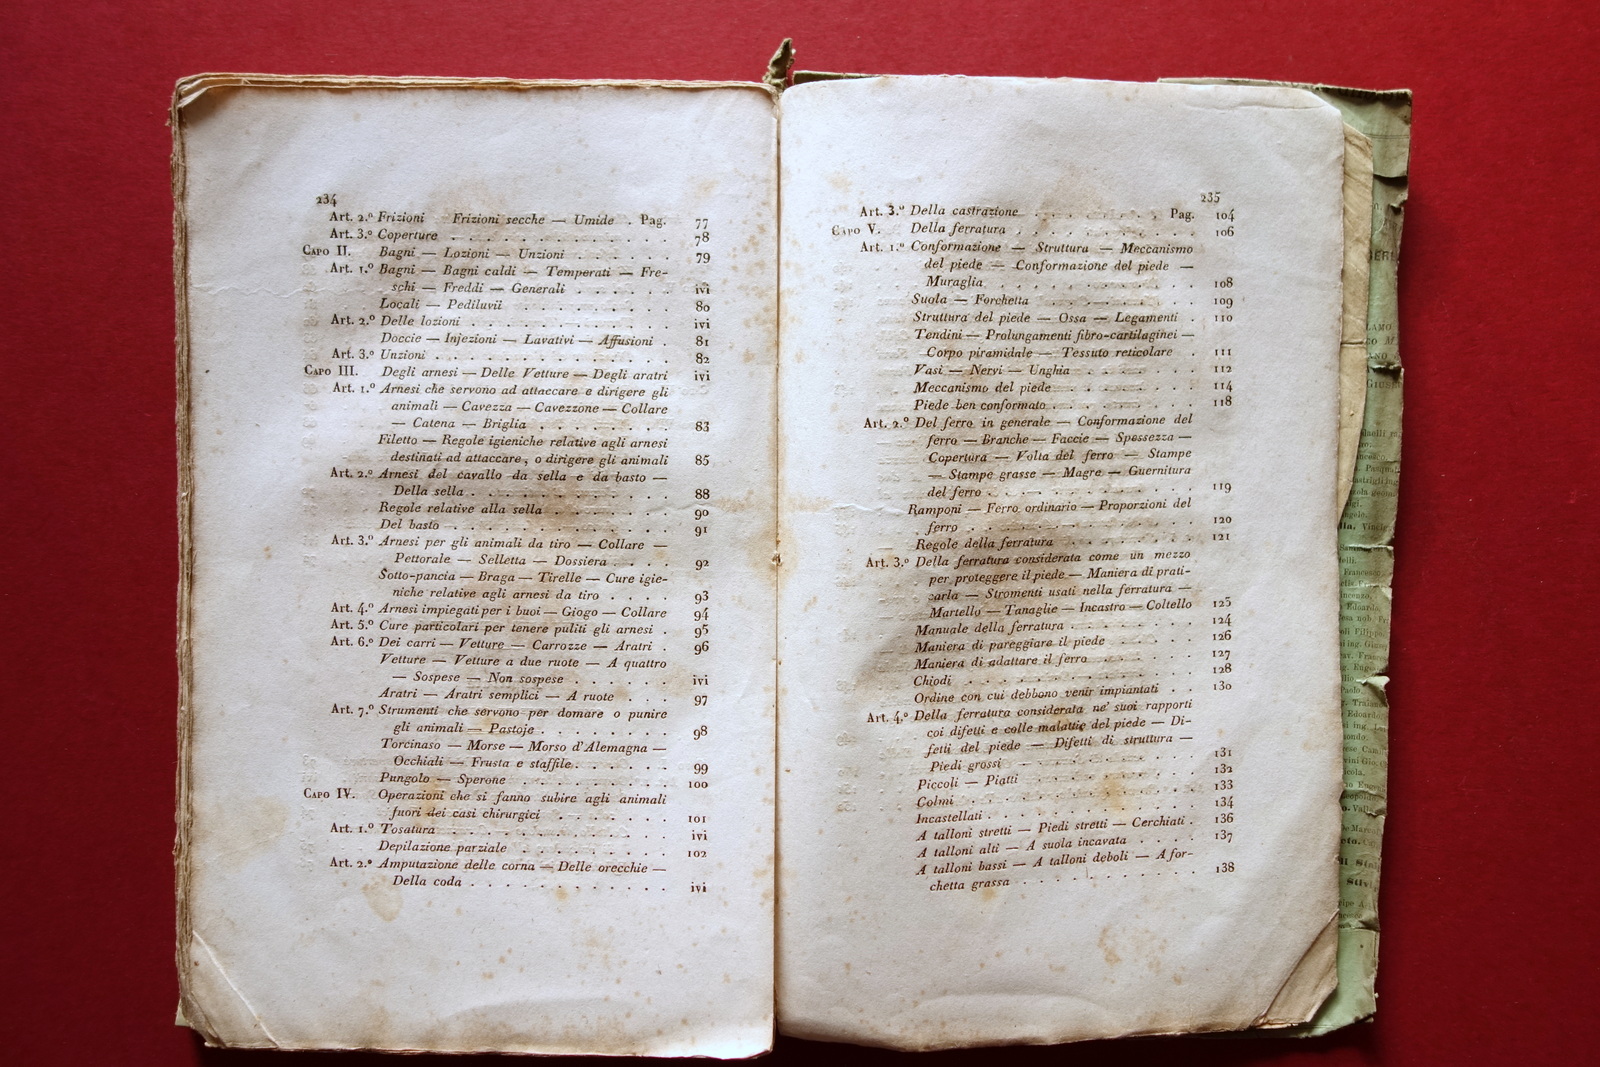 234
Art. 2.º Frizioni Frizioni secche — Umide . Pag. 77
Art. 3.º Coperture . . . . . . . . . . . . 78
CAPO II. Bagni — Lozioni — Unzioni . . . . . . 79
Art. 1.º Bagni — Bagni caldi — Temperati — Fre-
schi — Freddi — Generali . . . . . . ivi
Locali — Pediluvii . . . . . . . . . 80
Art. 2.º Delle lozioni . . . . . . . . . . . ivi
Doccie — Injezioni — Lavativi — Affusioni . 81
Art. 3.º Unzioni . . . . . . . . . . . . . 82
CAPO III. Degli arnesi — Delle Vetture — Degli aratri ivi
Art. 1.º Arnesi che servono ad attaccare e dirigere gli
animali — Cavezza — Cavezzone — Collare
— Catena — Briglia . . . . . . . . 83
Filetto — Regole igieniche relative agli arnesi
destinati ad attaccare, o dirigere gli animali 85
Art. 2.º Arnesi del cavallo da sella e da basto —
Della sella . . . . . . . . . . . 88
Regole relative alla sella . . . . . . . 90
Del basto . . . . . . . . . . . . 91
Art. 3.º Arnesi per gli animali da tiro — Collare —
Pettorale — Selletta — Dossiera . . . . 92
Sotto-pancia — Braga — Tirelle — Cure igie-
niche relative agli arnesi da tiro . . . . 93
Art. 4.º Arnesi impiegati per i buoi — Giogo — Collare 94
Art. 5.º Cure particolari per tenere puliti gli arnesi . 95
Art. 6.º Dei carri — Vetture — Carrozze — Aratri . 96
Vetture — Vetture a due ruote — A quattro
— Sospese — Non sospese . . . . . . ivi
Aratri — Aratri semplici — A ruote . . . . 97
Art. 7.º Strumenti che servono per domare o punire
gli animali — Pastoje . . . . . . . . 98
Torcinaso — Morse — Morso d'Alemagna —
Occhiali — Frusta e staffile . . . . . . 99
Pungolo — Sperone . . . . . . . . . 100
CAPO IV. Operazioni che si fanno subire agli animali
fuori dei casi chirurgici . . . . . . . 101
Art. 1.º Tosatura . . . . . . . . . . . . ivi
Depilazione parziale . . . . . . . . . 102
Art. 2.º Amputazione delle corna — Delle orecchie —
Della coda . . . . . . . . . . . ivi
235
Art. 3.º Della castrazione . . . . . . . . Pag. 104
CAPO V. Della ferratura . . . . . . . . . . 106
Art. 1.º Conformazione — Struttura — Meccanismo
del piede — Conformazione del piede —
Muraglia . . . . . . . . . . . . 108
Suola — Forchetta . . . . . . . . . 109
Struttura del piede — Ossa — Legamenti . 110
Tendini — Prolungamenti fibro-cartilaginei —
Corpo piramidale — Tessuto reticolare . 111
Vasi — Nervi — Unghia . . . . . . . 112
Meccanismo del piede . . . . . . . . 114
Piede ben conformato . . . . . . . . 118
Art. 2.º Del ferro in generale — Conformazione del
ferro — Branche — Faccie — Spessezza —
Copertura — Volta del ferro — Stampe
— Stampe grasse — Magre — Guernitura
del ferro . . . . . . . . . . . . 119
Ramponi — Ferro ordinario — Proporzioni del
ferro . . . . . . . . . . . . . 120
Regole della ferratura . . . . . . . . 121
Art. 3.º Della ferratura considerata come un mezzo
per proteggere il piede — Maniera di prati-
carla — Stromenti usati nella ferratura —
Martello — Tanaglie — Incastro — Coltello 123
Manuale della ferratura . . . . . . . 124
Maniera di pareggiare il piede . . . . . 126
Maniera di adattare il ferro . . . . . . 127
Chiodi . . . . . . . . . . . . . 128
Ordine con cui debbono venir impiantati . . 130
Art. 4.º Della ferratura considerata ne' suoi rapporti
coi difetti e colle malattie del piede — Di-
fetti del piede — Difetti di struttura —
Piedi grossi . . . . . . . . . . . 131
Piccoli — Piatti . . . . . . . . . . 132
Colmi . . . . . . . . . . . . . 133
Incastellati . . . . . . . . . . . . 134
A talloni stretti — Piedi stretti — Cerchiati . 136
A talloni alti — A suola incavata . . . . 137
A talloni bassi — A talloni deboli — A for-
chetta grassa . . . . . . . . . . . 138